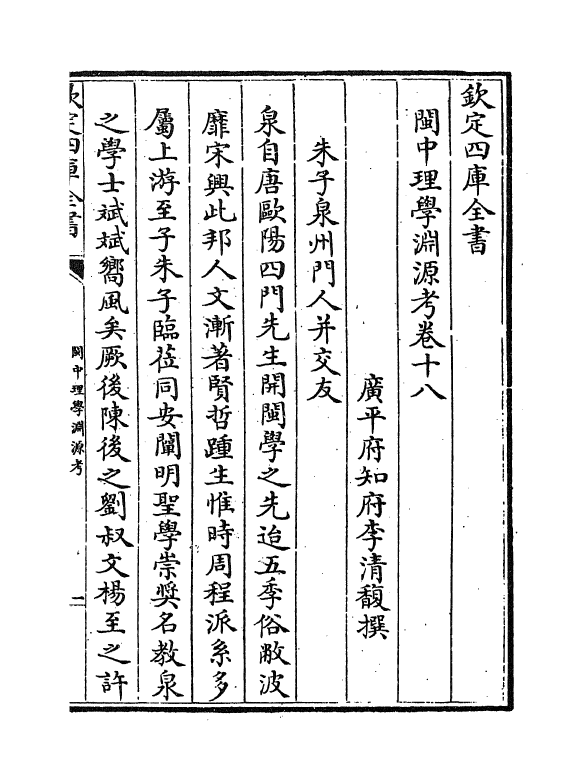 欽定四庫全書
閩中理學淵源考卷十八
廣平府知府李清馥撰
朱子泉州門人并交友
泉自唐歐陽四門先生開閩學之先迨五季俗敝波
靡宋興此邦人文漸著賢哲踵生惟時周程派系多
屬上游至子朱子臨莅同安闡明聖學崇奬名教泉
之學士斌斌嚮風矣厥後陳後之劉叔文楊至之許
欽定四庫全書
閩中理學淵源考